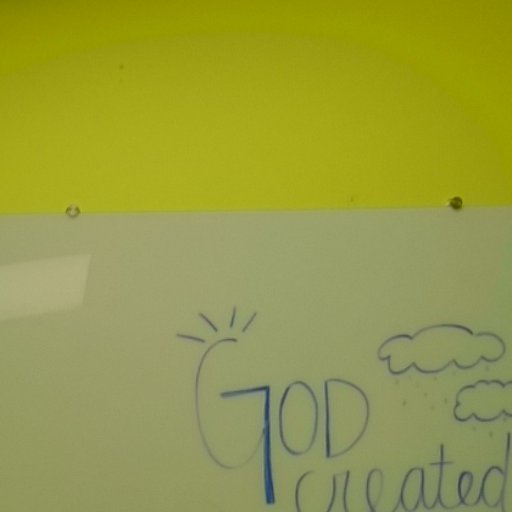 GOD
created